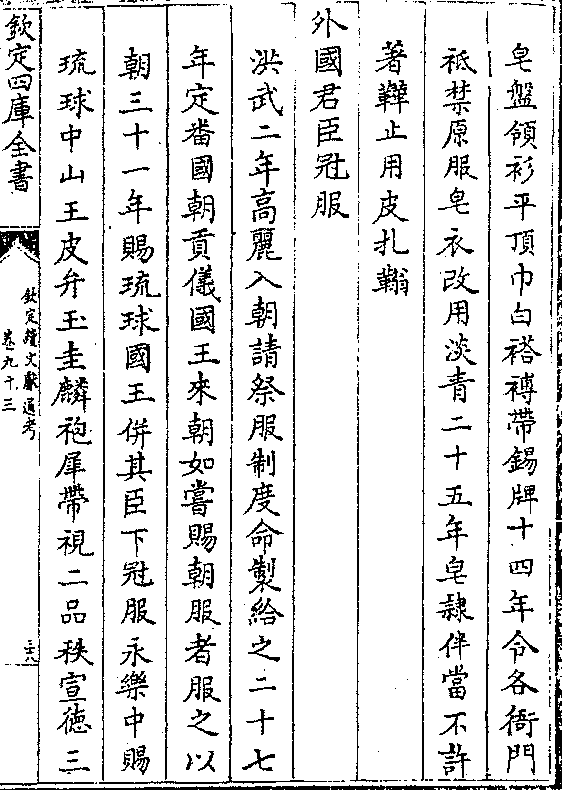 皂盤領衫平頂巾白褡䙏帶錫牌十四年令各衙門
祗禁原服皂衣改用淡青二十五年皂隷伴當不許
著鞾止用皮扎𩍓
外國君臣冠服
洪武二年高麗入朝請祭服制度命製給之二十七
年定畨國朝貢儀國王來朝如嘗賜朝服者服之以
朝三十一年賜琉球國王併其臣下冠服永樂中賜
琉球中山王皮弁玉圭麟袍犀帶視二品秩宣徳三
欽定四庫全書
欽定續文獻通考
卷九十三
三十八